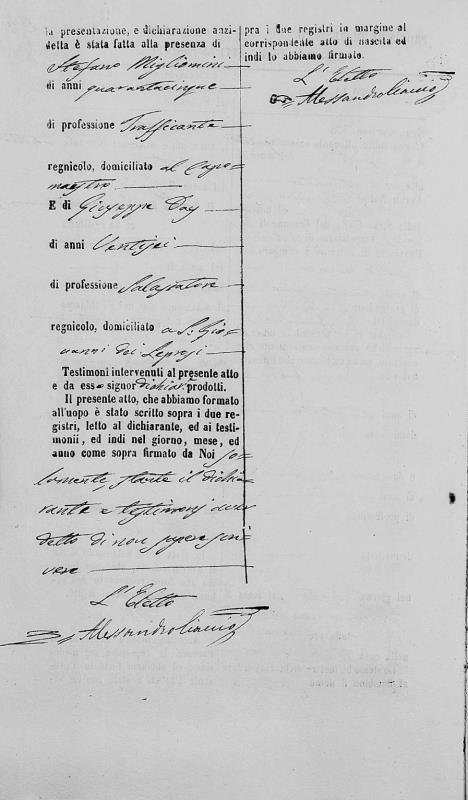 la presentazione, e dichiarazione anzi-
detta è stata fatta alla presenza di
Stefano Migliomini
di anni quarantacinque
di professione Trafficante
regnicolo, domiciliato al Capo-
mastro
E di Giuseppe Day
di anni Ventisei
di professione Salassatore
regnicolo, domiciliato a S. Gio-
vanni dei Leprosi
Testimoni intervenuti al presente atto
e da esso signor dichiar prodotti.
Il presente atto, che abbiamo formato
all'uopo è stato scritto sopra i due re-
gistri, letto al dichiarante, ed ai testi-
monii, ed indi nel giorno, mese, ed
anno come sopra firmato da Noi so-
lamente, stante il dichia-
rante e testimonj aver
detto di non sapere scri-
vere
L'Eletto
Alessandro
pra i due registri in margine al
corrispondente atto di nascita ed
indi lo abbiamo firmato.
L'Eletto
Alessandro